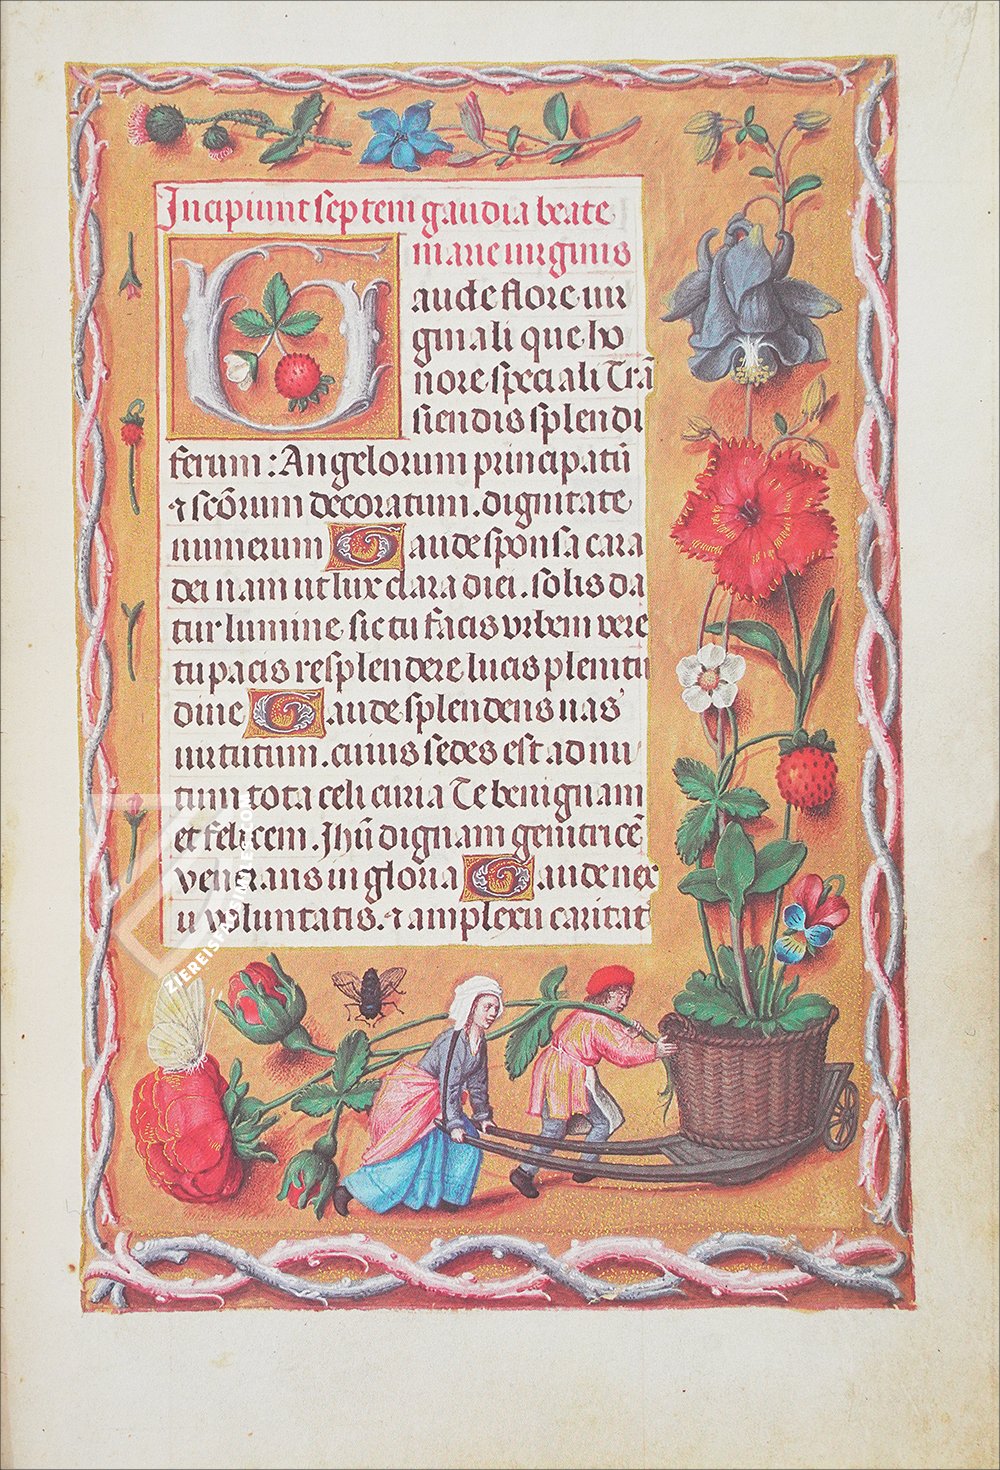 Incipiunt septem gaudia beate
marie virginis
Gaude flore vir
ginali que ho
nore speciali Trā
siendis splendi
ferum : Angelorum principatū
⁊ scōrum decoratum . dignitate
numerum Gaude sponsa cara
dei nam ut lux clara diei . solis da
tur lumine sic tu facis vrbem vere
tu pacis resplendere lucis plenitu
dine Gaude splendens uas
uirtutum . cuius sedes est ad nu
tum tota celi curia Te benignam
et felicem . Jhū dignam genitricē
venerans in gloria Gaude nex
u voluntatis . ⁊ amplexu caritat
ZIEREISFACSIMILES.COM